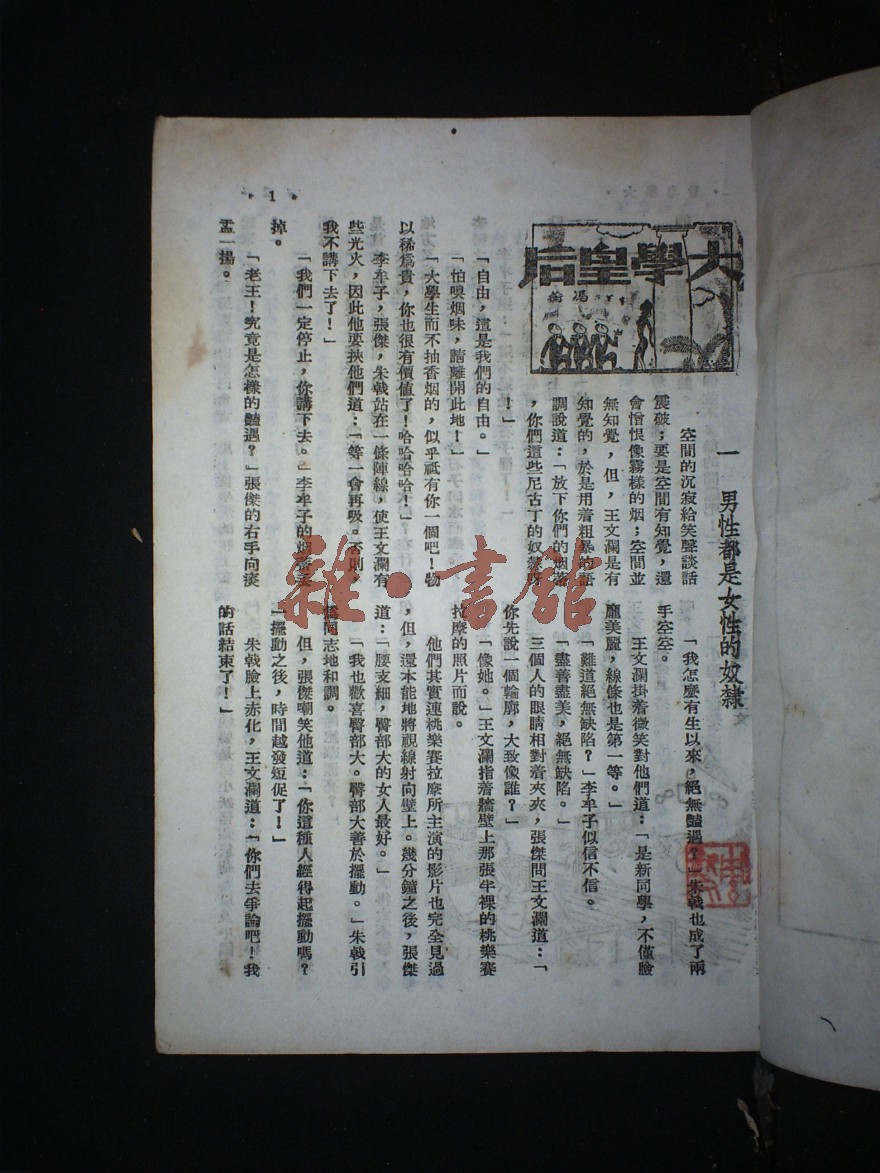 大學皇后
馮蘅
一　男性都是女性的奴隸
空間的沉寂給笑聲談話
震破；要是空間有知覺，還
會憎恨像霧樣的烟；空間並
無知覺，但，王文瀾是有
知覺的，於是用着粗暴的語
調說道：「放下你們的烟蒂
，你們這些尼古丁的奴隸呀
！」
「自由，這是我們的自由。」
「怕嗅烟味，請離開此地！」
「大學生而不抽香烟的，似乎祗有你一個吧！物
以稀爲貴，你也很有價值了！哈哈哈哈！」
李牟子，張傑，朱戟站在一條陣線，使王文瀾有
些光火，因此他要挾他們道：「等一會再吸。否則，
我不講下去了！」
「我們一定停止，你講下去。」李牟子的烟蒂丟
掉。
「老王！究竟是怎樣的豔遇？」張傑的右手向痰
盂一揚。
「我怎麼有生以來，絕無豔遇？」朱戟也成了兩
手空空。
王文瀾掛着微笑對他們道：「是新同學，不僅臉
龐美麗，線條也是第一等。」
「難道絕無缺陷？」李牟子似信不信。
「盡善盡美，絕無缺陷。」
三個人的眼睛相對着夾夾，張傑問王文瀾道：「
你先說一個輪廓，大致像誰？」
「像她。」王文瀾指着牆壁上那張半裸的桃樂賽
拉摩的照片而說。
他們其實連桃樂賽拉摩所主演的影片也完全見過
，但，還本能地將視線射向壁上。幾分鐘之後，張傑
道：「腰支細，臀部大的女人最好。」
「我也歡喜臀部大。臀部大善於擺動。」朱戟引
爲同志地和調。
但，張傑嘲笑他道：「你這種人經得起擺動嗎？
一擺動之後，時間越發短促了！」
朱戟臉上赤化，王文瀾道：「你們去爭論吧！我
的話結束了！」
• 1 •
雜·書館